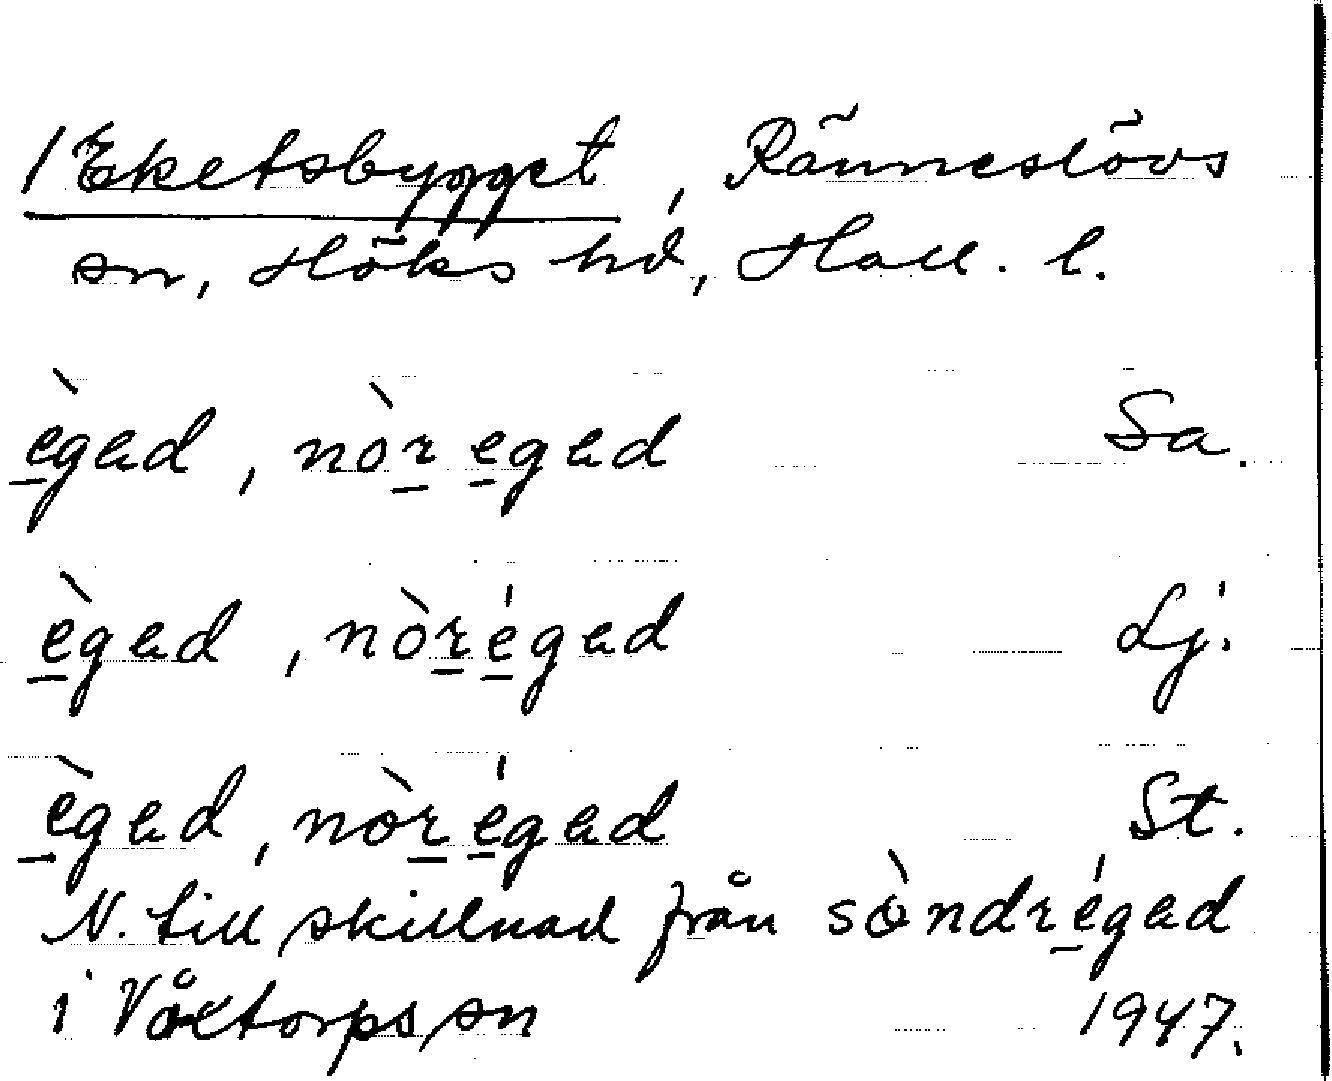 / Eketsbygget, Ränneslövs
sn, Höks hd, Hall. l.
è̲gad, nòr̲ e̲gad Sa.
è̲gad, nòr̲é̲gad Lj.
è̲gad, nòr̲é̲gad St.
N. till skillnad från sòndré̲gad
i Våxtorps sn 1947.